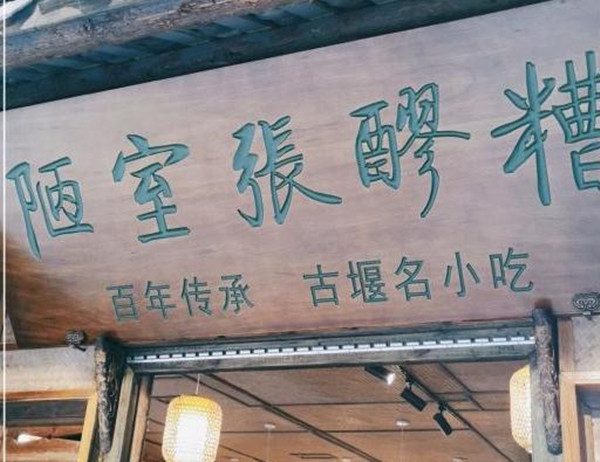 陋室張醪糟
百年传承 古堰名小吃